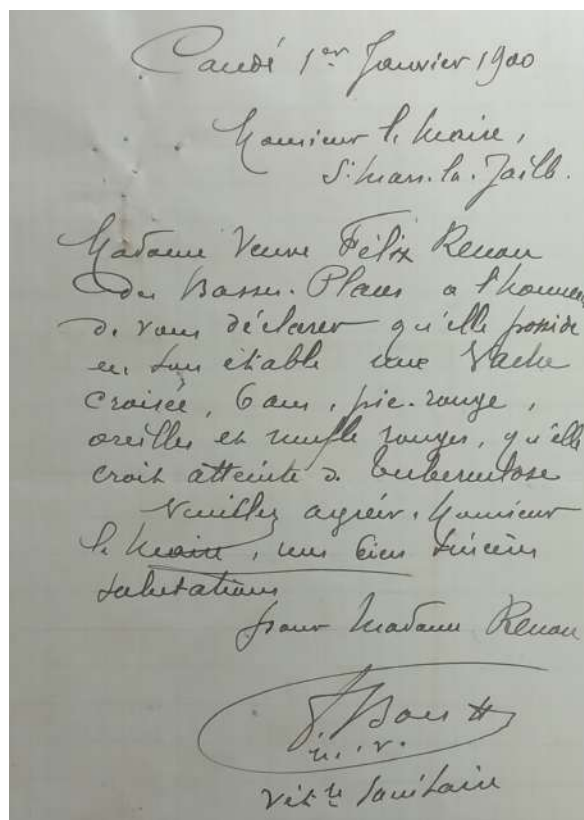 Candé 1er Janvier 1900
Monsieur le Maire,
St Mars-la-Jaille.
Madame Veuve Félix Renou
des Basses-Places a l'honneur
de vous déclarer qu'elle possède
en son étable une Vache
croisée, 6 ans, pie-rouge,
oreilles et mufle rouges, qu'elle
croit atteinte de tuberculose
Veuillez agréer, Monsieur
le Maire, mes bien sincères
salutations
pour Madame Renou
m. v.
Vétre Sanitaire